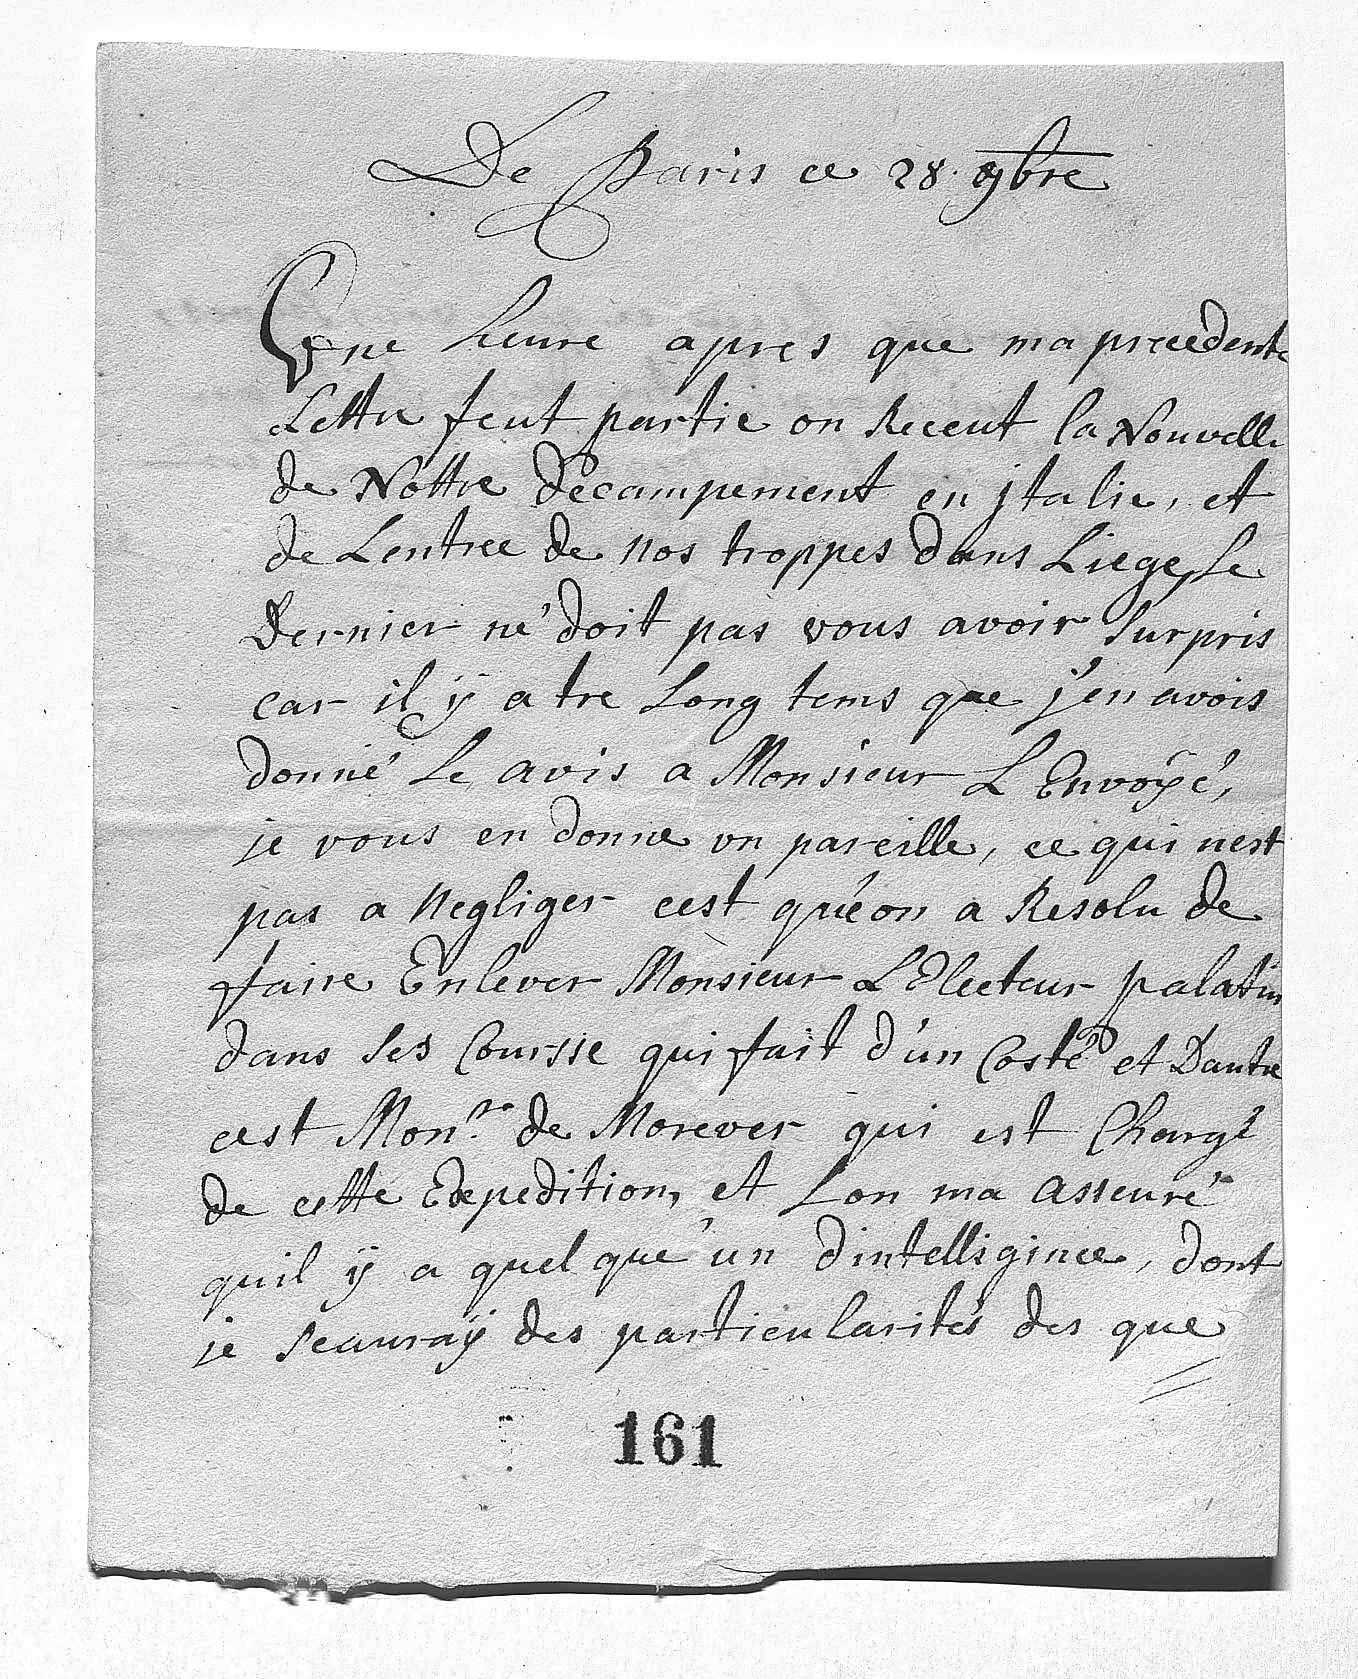 De Paris ce 28. 9bre
Une heure apres que ma precedente
Lettre feut partie on Receut la Nouvelle
de Nottre décampement en jtalie, et
de Lentree de nos troppes dans Liege, Le
Dernier ne doit pas vous avoir surpris
car il ÿ a tre Long tems que j'en avois
donné Le avis a Monsieur L Envoÿé,
je vous en donne un pareille, ce qui nest
pas a Negliger cest quéon a Resolu de
faire Enlever Monsieur L Electeur palatin
dans ses Coursse qui fait d'un Costé et Dautre
cest Mon.r de Morever qui est Chargé
de cette Expedition, et Lon ma asseuré
quil ÿ a quel que un dintelligince, dont
je scauraÿ des particularités des que
161